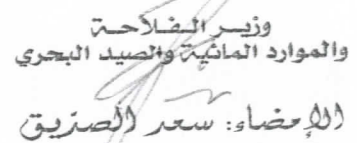 وزيـر الـفـلاحـة
والموارد المائية والصيد البحري
الإمضاء: سعد الصدّيق